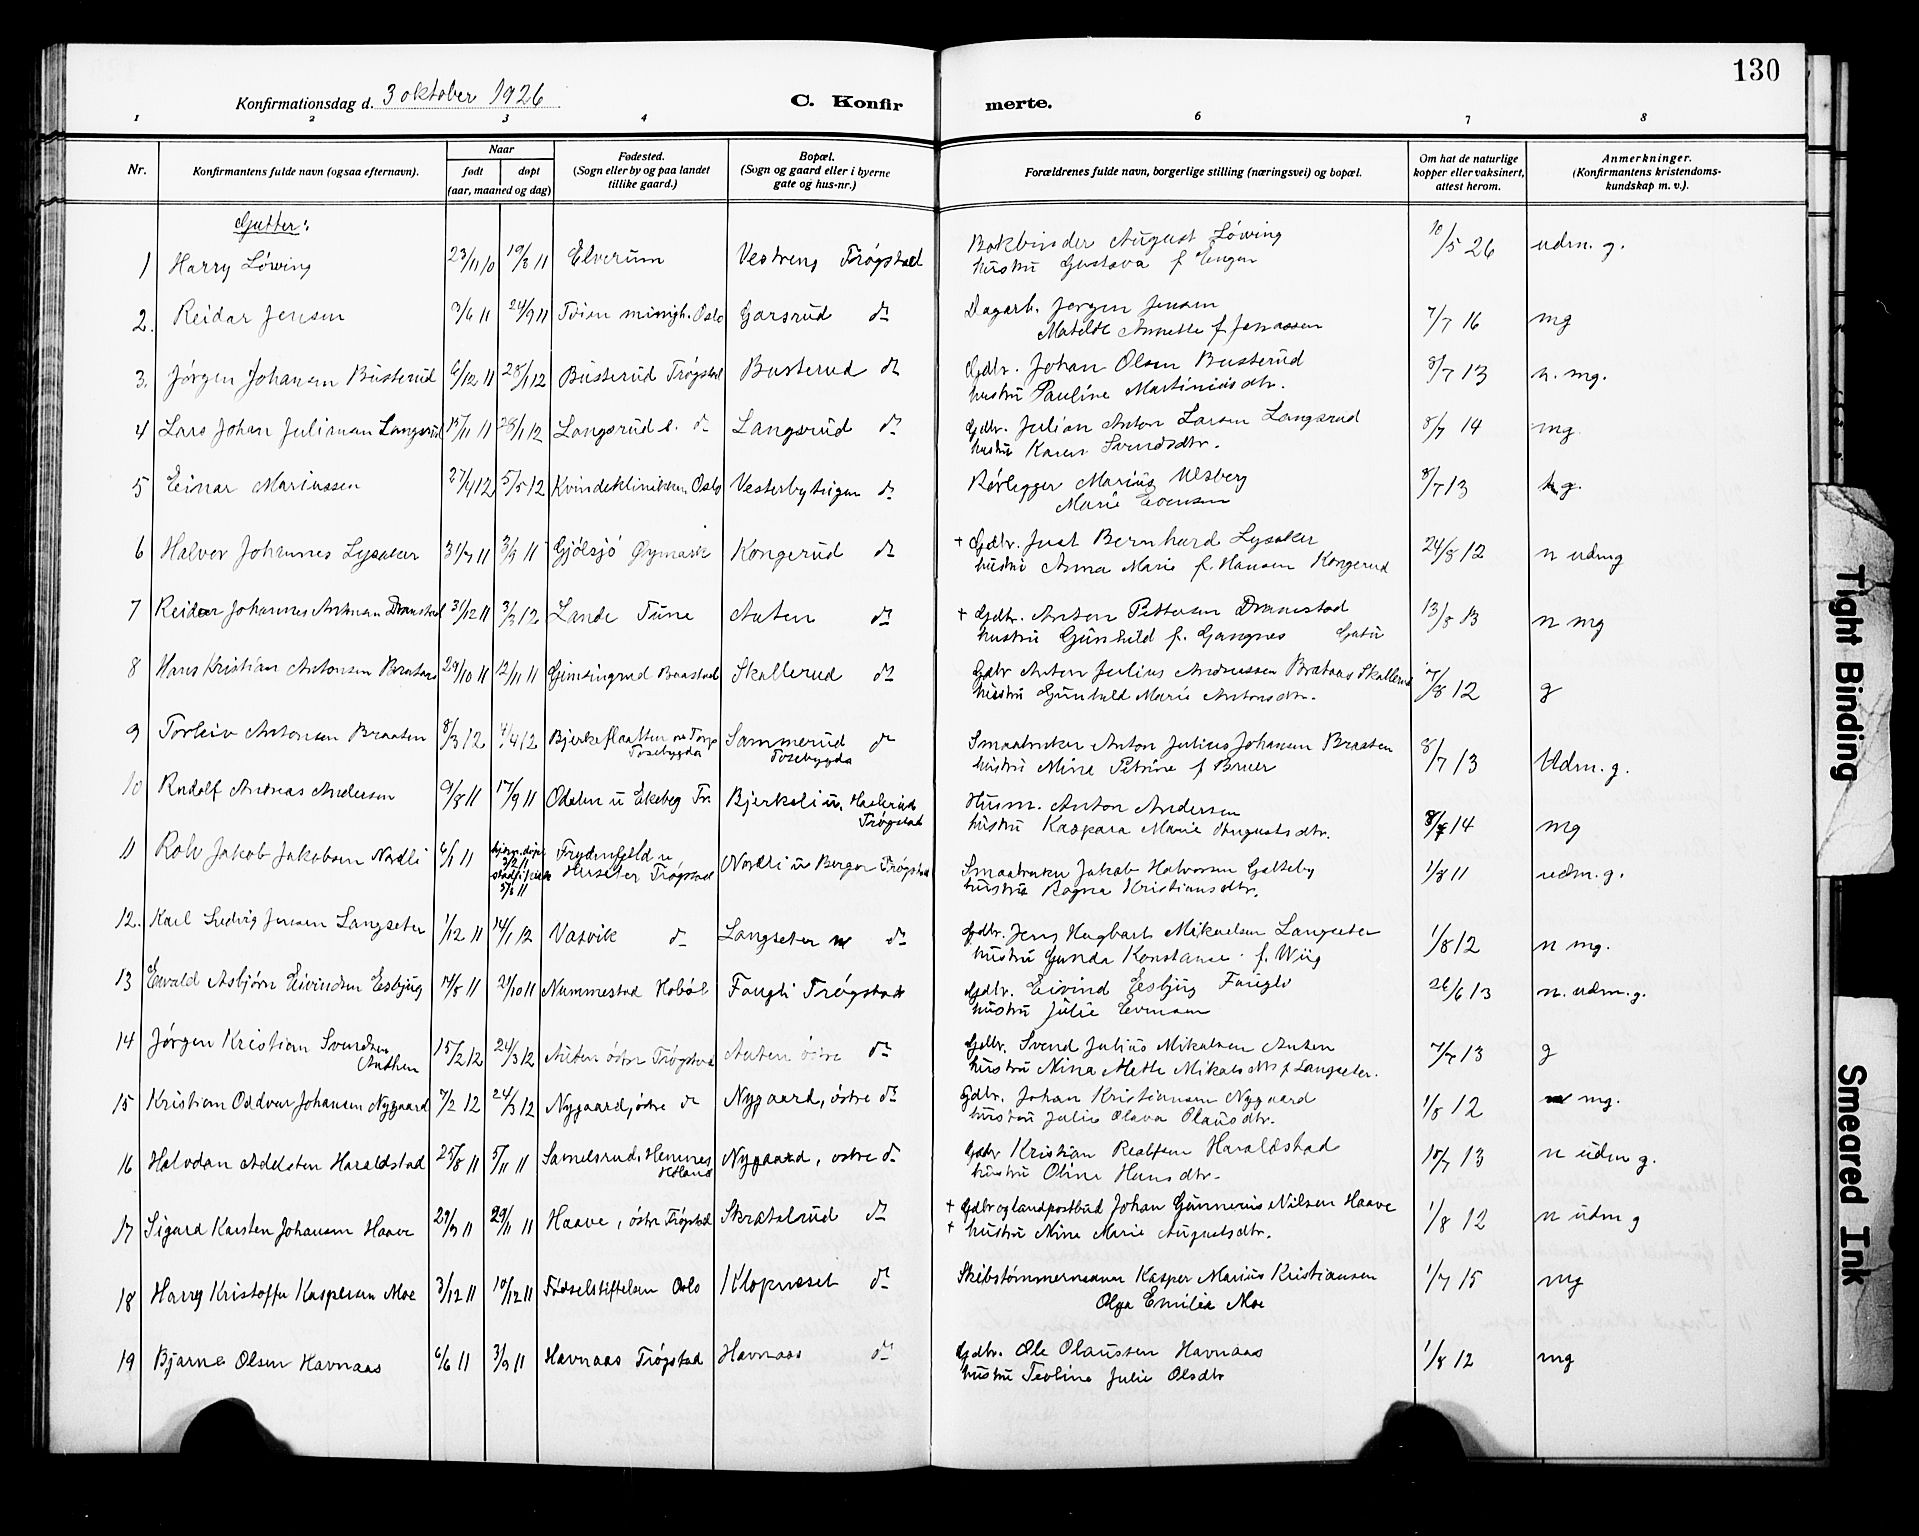 130
Konfirmationsdag d. 3 oktober 1926
C. Konfirmerte.
1 2 3 4 5 6 7 8
Nr. Konfirmantens fulde navn (ogsaa efternavn). Naar født døpt (aar, maaned og dag) Fødested. (Sogn eller by og paa landet tillike gaard.) Bopæl. (Sogn og gaard eller i byerne gate og hus-nr.) Forældrenes fulde navn, borgerlige stilling (næringsvei) og bopæl. Om hat de naturlige kopper eller vaksinert, attest herom. Anmerkninger. (Konfirmantens kristendomskundskap m. v.).
Gutter:
1 Harry Løwing 23/11 10 19/3 11 Elverum Vestreng Trøgstad Bokbinder August Løwing 10/5 26 udm. g.
hustru Gustava f. Enger
2. Reidar Jensen 3/6 11 24/9 11 Oslo Garsrud do Dagarb. Jørgen Jensen 7/7 16 mg
Matilde Annette f. Jonassen
3. Jørgen Johansen Busterud 6/12 11 28/1 12 Busterud Trøgstad Busterud do Gdbr. Johan Olsen Busterud 8/7 13 n. mg.
hustru Pauline Martiniusdtr.
4 Lars Johan Juliansen Langsrud 15/11 11 28/1 12 Langsrud do Langsrud do Gdbr. Julian Anton Larsen Langsrud 8/7 14 mg
hustru Karen Svendsdtr.
5 Einar Mariussen 27/4 12 5/5 12 Kvindeklinikken Oslo Vesterbystigen do Rørlegger Marius Ulsberg 8/7 13 g.
Marie Evensen
6 Halvor Johannes Lysaker 31/7 11 3/9 11 Gjølsjø Øymark Kongerud do + Gdbr. Just Bernhard Lysaker 24/8 12 n udmg
hustru Anna Marie f. Hansen Kongerud
7 Reidar Johannes Antonsen Dramstad 31/12 11 3/3 12 Lande Tune Auten do + Gdbr. Anton Pettersen Dramstad 13/8 13 n mg
hustru Gunhild f. Gangnes
8 Hans Kristian Antonsen Brataas 29/10 11 12/11 11 Gimsingrud Baastad Skallerud do Gdbr Anton Julius Andreassen Brataas Skallerud /8 12 g
hustru Gunhild Marie Antonsdtr.
9 Torleiv Antonsen Braaten 8/3 12 4/4 12 Bjerkeflaatten Tosebygda Sommerud Tosebygda do Smaabruker Anton Julius Johansen Braaten 8/7 13 Udm. g.
hustru Mine Petrine f Bruer
10 Rudolf Andreas Andersen 9/8 11 17/9 11 Odalen u Ekeberg Tr. Bjerkeli u. Haslerud Trøgstad Husm. Anton Andersen 8/7 14 mg
hustru Kaspara Marie Augustsdtr.
11 Rolv Jakob Jakobsen Nordli 6/1 11 hjem. døpt 3/2 11 stadf. i kirke 5/6 11 Frydenfeld u Huseter Trøgstad Nordli u Berger Trøgstad Smaabruker Jakob Halvorsen Galteby 1/8 11 udm. g.
hustru Ragna Kristiansdtr.
12. Karl Ludvig Jensen Langseter 1/12 11 14/1 12 Vasvik do Langseter do Gdbr. Jens Hagbart Mikaelsen Langseter 1/8 12 n mg.
hustru Gunda Konstance f. Wiig
13 Ewald Asbjørn Eivindsen Esbjug 17/8 11 21/10 11 Nummestad Hobøl Fougli Trøgstad Gdbr. Eivind Esbjug Fougli 26/6 13 n. udm. g.
hustru Julie Evensen
14 Jørgen Kristian Svendsen Authen 15/2 12 24/3 12 Auten østre Trøgstad Auten østre do Gdbr. Svend Julius Mikalsen Auten 7/7 13 g
hustru Nina Mette Mikalsdtr f Langseter.
15 Kristian Oddvar Johansen Nygaard 7/2 12 24/3 12 Nygaard, østre do Nygaard, østre do Gdbr. Johan Kristiansen Nygaard 1/8 12 mg.
hustru Julie Olava Olausdtr.
16 Halvdan Adelsten Haraldstad 25/8 11 5/11 11 Samelsrud, Hemnes Høland Nygaard, østre do Gdbr Kristian Realfsen Haraldstad 10/7 13 n udm g.
hustru Oline Hansdtr.
17 Sigurd Karsten Johansen Haave 29/9 11 29/11 11 Haave, østre Trøgstad Skrætalrud do + Gdbr og landpostbud Johan Gunnerius Nilsen Haave 1/8 12 n udm g
+ hustru Mine Marie Augustsdtr.
18 Harry Kristoffer Kaspersen Moe 3/12 11 10/12 11 Fødselstiftelsen Oslo Klopneset do Skibstømmermann Kasper Marius Kristiansen 1/7 15 mg
Olga Emilie Moe
19 Bjarne Olsen Havnaas 6/6 11 3/9 11 Havnaas Trøgstad Havnaas do Gdbr. Ole Olaussen Havnaas 1/8 12 mg
hustru Teoline Julie Olsdtr
Tight Binding
Smeared Ink